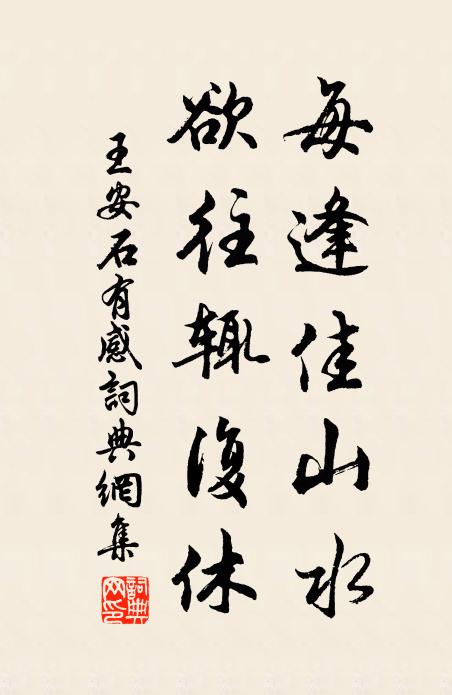 每逢佳山水
欲往辄復休
王安石有感詞典網集
詞典网印